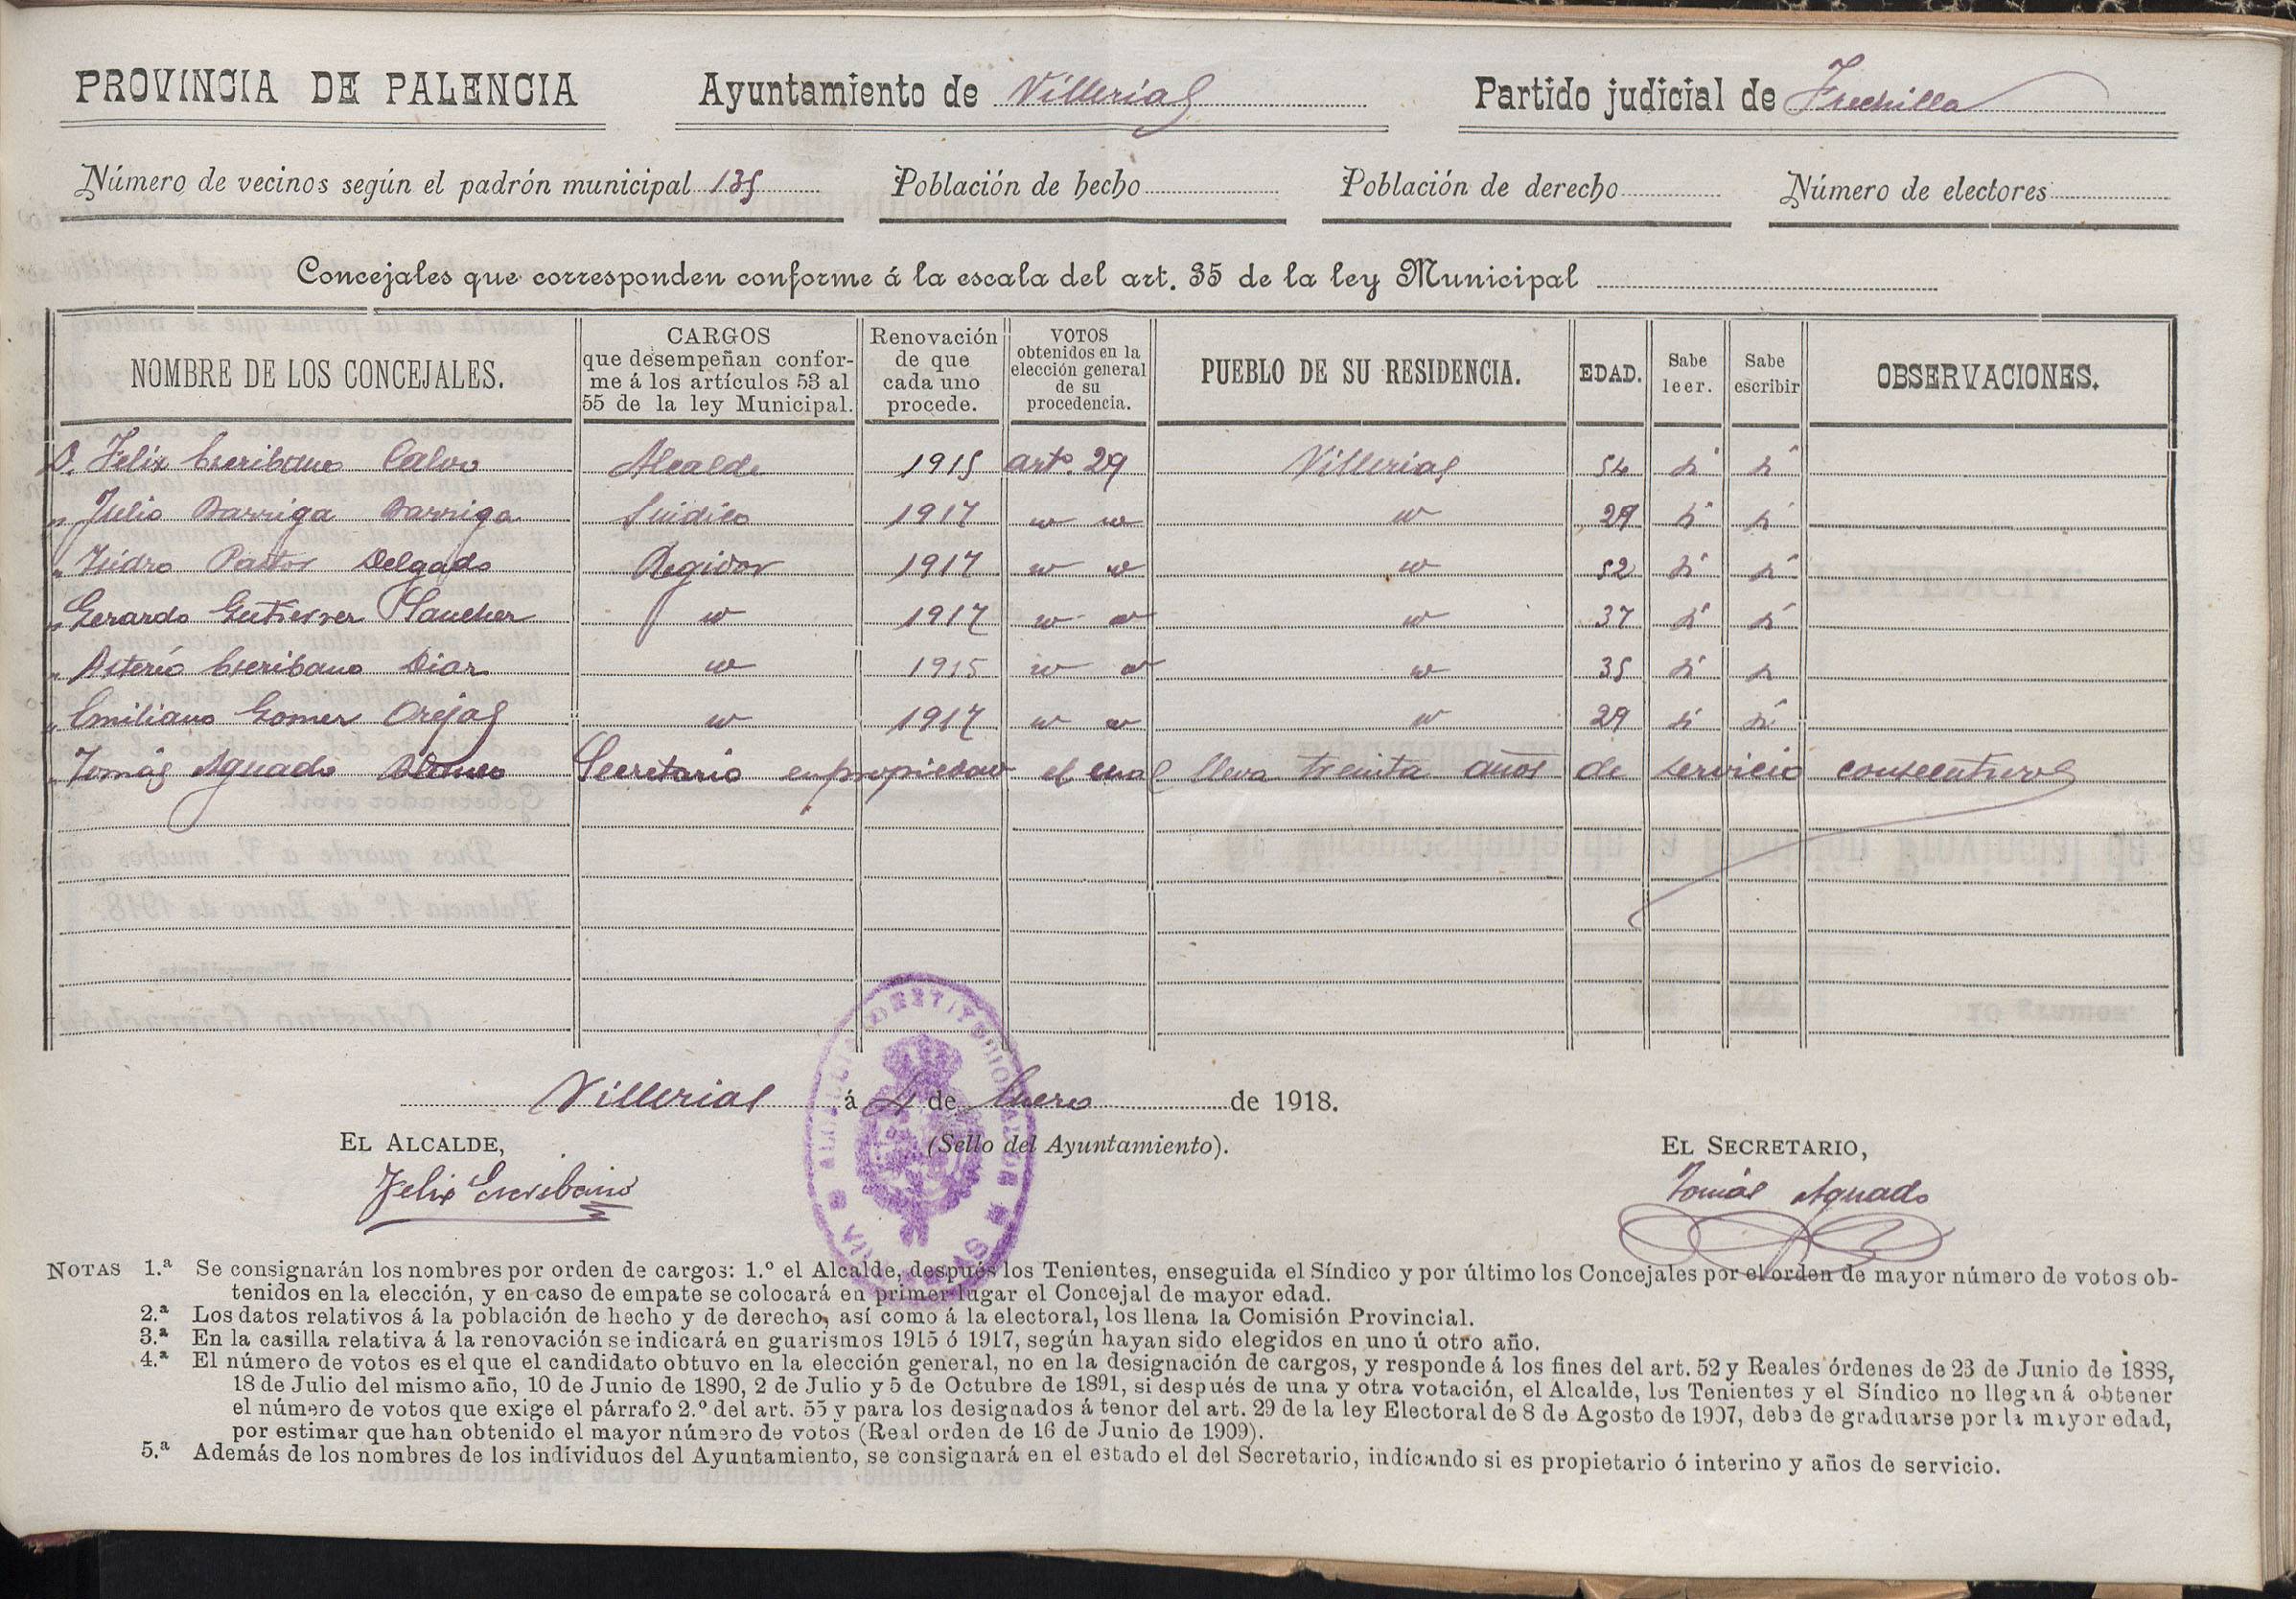 PROVINCIA DE PALENCIA Ayuntamiento de Villerias Partido judicial de Frechilla
Número de vecinos según el padrón municipal 135 Población de hecho Población de derecho Número de electores
Concejales que corresponden conforme á la escala del art. 35 de la ley Municipal
NOMBRE DE LOS CONCEJALES. CARGOS que desempeñan conforme á los artículos 53 al 55 de la ley Municipal. Renovación de que cada uno procede. VOTOS obtenidos en la elección general de su procedencia. PUEBLO DE SU RESIDENCIA. EDAD. Sabe leer. Sabe escribir OBSERVACIONES.
D. Felix Escribano Calvo Alcalde 1915 arto. 29 Villerias 54 si si
" Julio Barriga Barriga Sindico 1917 " " " 29 si si
" Isidro Pastor Delgado Regidor 1917 " " " 52 si si
" Gerardo Gutierrez Sanchez " 1917 " " " 37 si si
" Asterio Escribano Diaz " 1915 " " " 35 si si
" Emiliano Gomez Orejas " 1917 " " " 29 si si
" Tomás Aguado Blanco Secretario en propiedad el cual lleva treinta años de servicio consecutivos
Villerias á 4 de Enero de 1918.
EL ALCALDE, (Sello del Ayuntamiento). EL SECRETARIO,
Felix Escribano Tomás Aguado
NOTAS 1.ª Se consignarán los nombres por orden de cargos: 1.º el Alcalde, después los Tenientes, enseguida el Síndico y por último los Concejales por el orden de mayor número de votos ob-
tenidos en la elección, y en caso de empate se colocará en primer lugar el Concejal de mayor edad.
2.ª Los datos relativos á la población de hecho y de derecho, así como á la electoral, los llena la Comisión Provincial.
3.ª En la casilla relativa á la renovación se indicará en guarismos 1915 ó 1917, según hayan sido elegidos en uno ú otro año.
4.ª El número de votos es el que el candidato obtuvo en la elección general, no en la designación de cargos, y responde á los fines del art. 52 y Reales órdenes de 23 de Junio de 1888,
18 de Julio del mismo año, 10 de Junio de 1890, 2 de Julio y 5 de Octubre de 1891, si después de una y otra votación, el Alcalde, los Tenientes y el Síndico no llegan á obtener
el número de votos que exige el párrafo 2.º del art. 55 y para los designados á tenor del art. 29 de la ley Electoral de 8 de Agosto de 1907, debe de graduarse por la mayor edad,
por estimar que han obtenido el mayor número de votos (Real orden de 16 de Junio de 1909).
5.ª Además de los nombres de los individuos del Ayuntamiento, se consignará en el estado el del Secretario, indicando si es propietario ó interino y años de servicio.